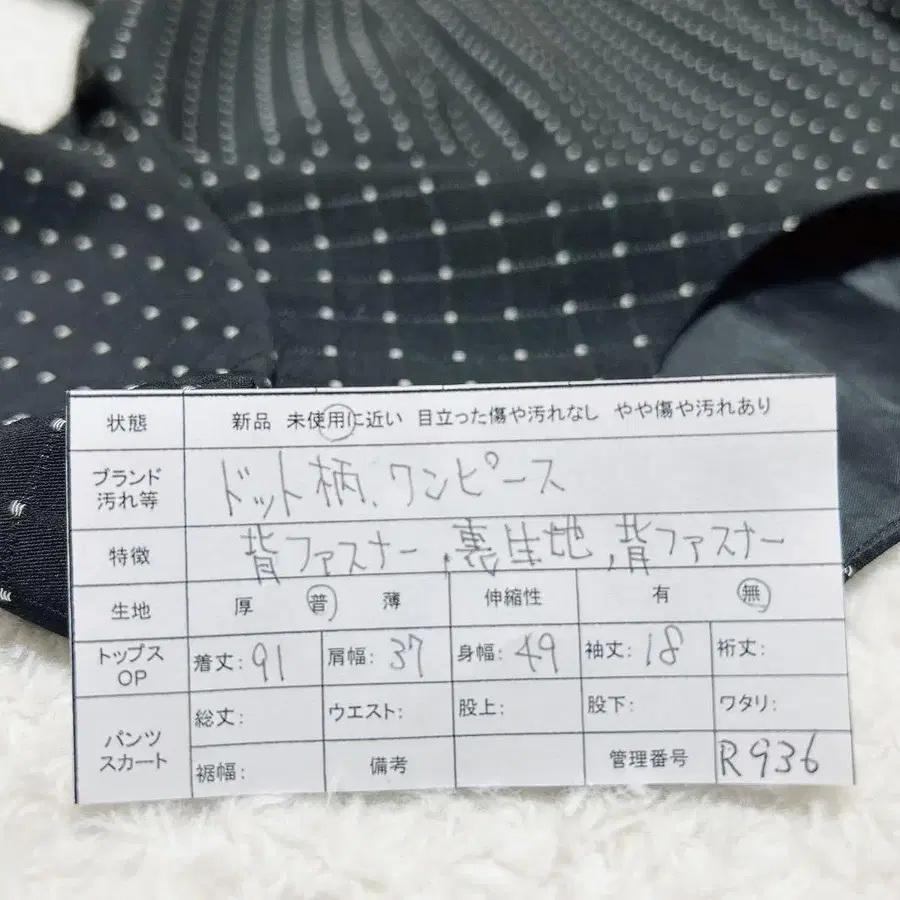 状態 新品 未使用に近い 目立った傷や汚れなし やや傷や汚れあり
ブランド
汚れ等
ドット柄、ワンピース
特徴 背ファスナー、裏生地、背ファスナー
生地 厚 普 薄 伸縮性 有 無
トップス
OP
着丈: 91 肩幅: 37 身幅: 49 袖丈: 18 裄丈:
パンツ
スカート
総丈: ウエスト: 股上: 股下: ワタリ:
裾幅: 備考 管理番号 R936